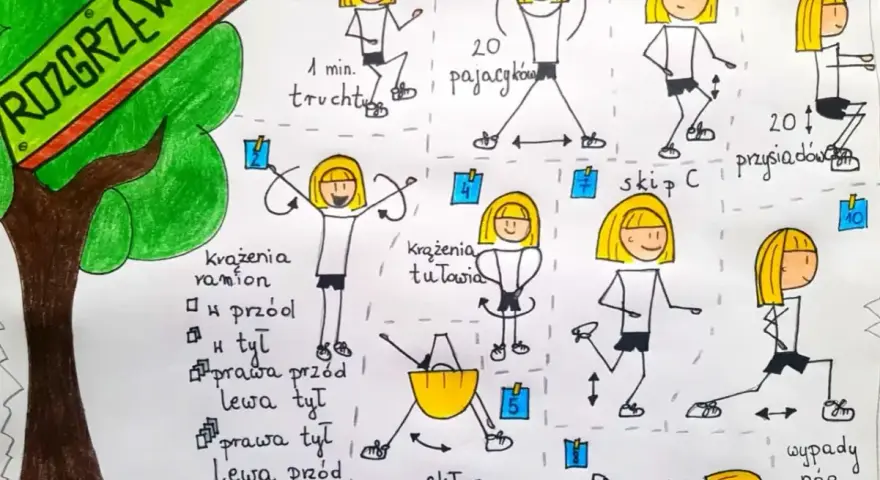 ROZGRZEW
1 min.
truchtu
20
pajacyków
20
przysiadów
2
krążenia
ramion
w przód
w tył
prawa przód
lewa tył
prawa tył
lewa przód
4
krążenia
tułowia
5
7
skip C
8
10
wypady
nóg